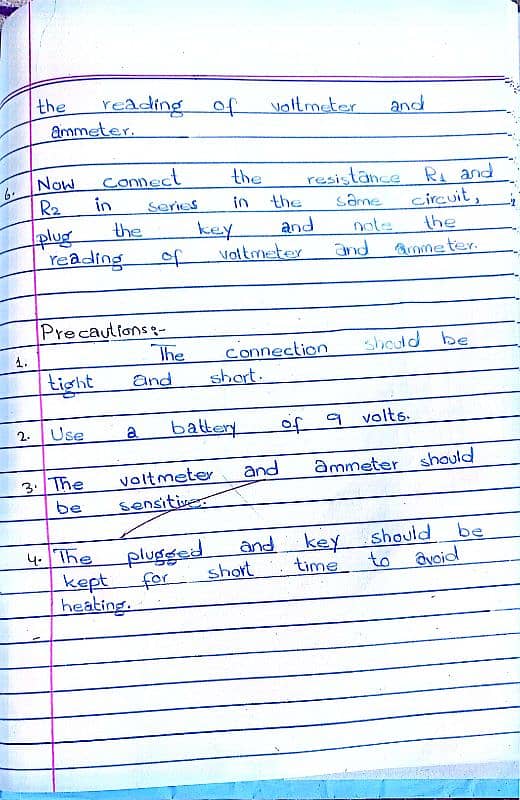 the reading of voltmeter and
ammeter.
6. Now connect the resistance R1 and
R2 in series in the same circuit,
plug the key and note the
reading of voltmeter and ammeter.
Precautions:-
1. The connection should be
tight and short.
2. Use a battery of 9 volts.
3. The voltmeter and ammeter should
be sensitive.
4. The plugged and key should be
kept for short time to avoid
heating.